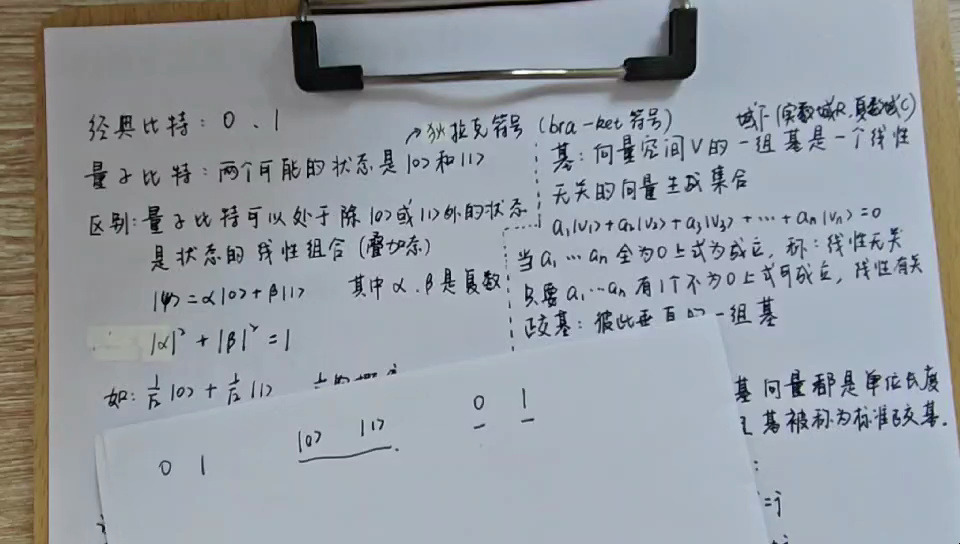 经典比特：0、1
量子比特：两个可能的状态是|0〉和|1〉
区别：量子比特可以处于除|0〉或|1〉外的状态
是状态的线性组合(叠加态)
|ψ〉=α|0〉+β|1〉 其中α、β是复数
|α|²+|β|²=1
如：1/√2|0〉+1/√2|1〉
→狄拉克符号(bra-ket符号)
域F(实数域R,复数域C)
基：向量空间V的一组基是一个线性
无关的向量生成集合
a₁|v₁〉+a₂|v₂〉+a₃|v₃〉+⋯+aₙ|vₙ〉=0
当a₁⋯aₙ全为0上式为成立，称：线性无关
只要a₁⋯aₙ有1个不为0上式可成立，线性有关
正交基：彼此垂直的一组基
基向量都是单位长度
基被称为标准正交基.
=j
0 1 |0〉 |1〉. 0 1